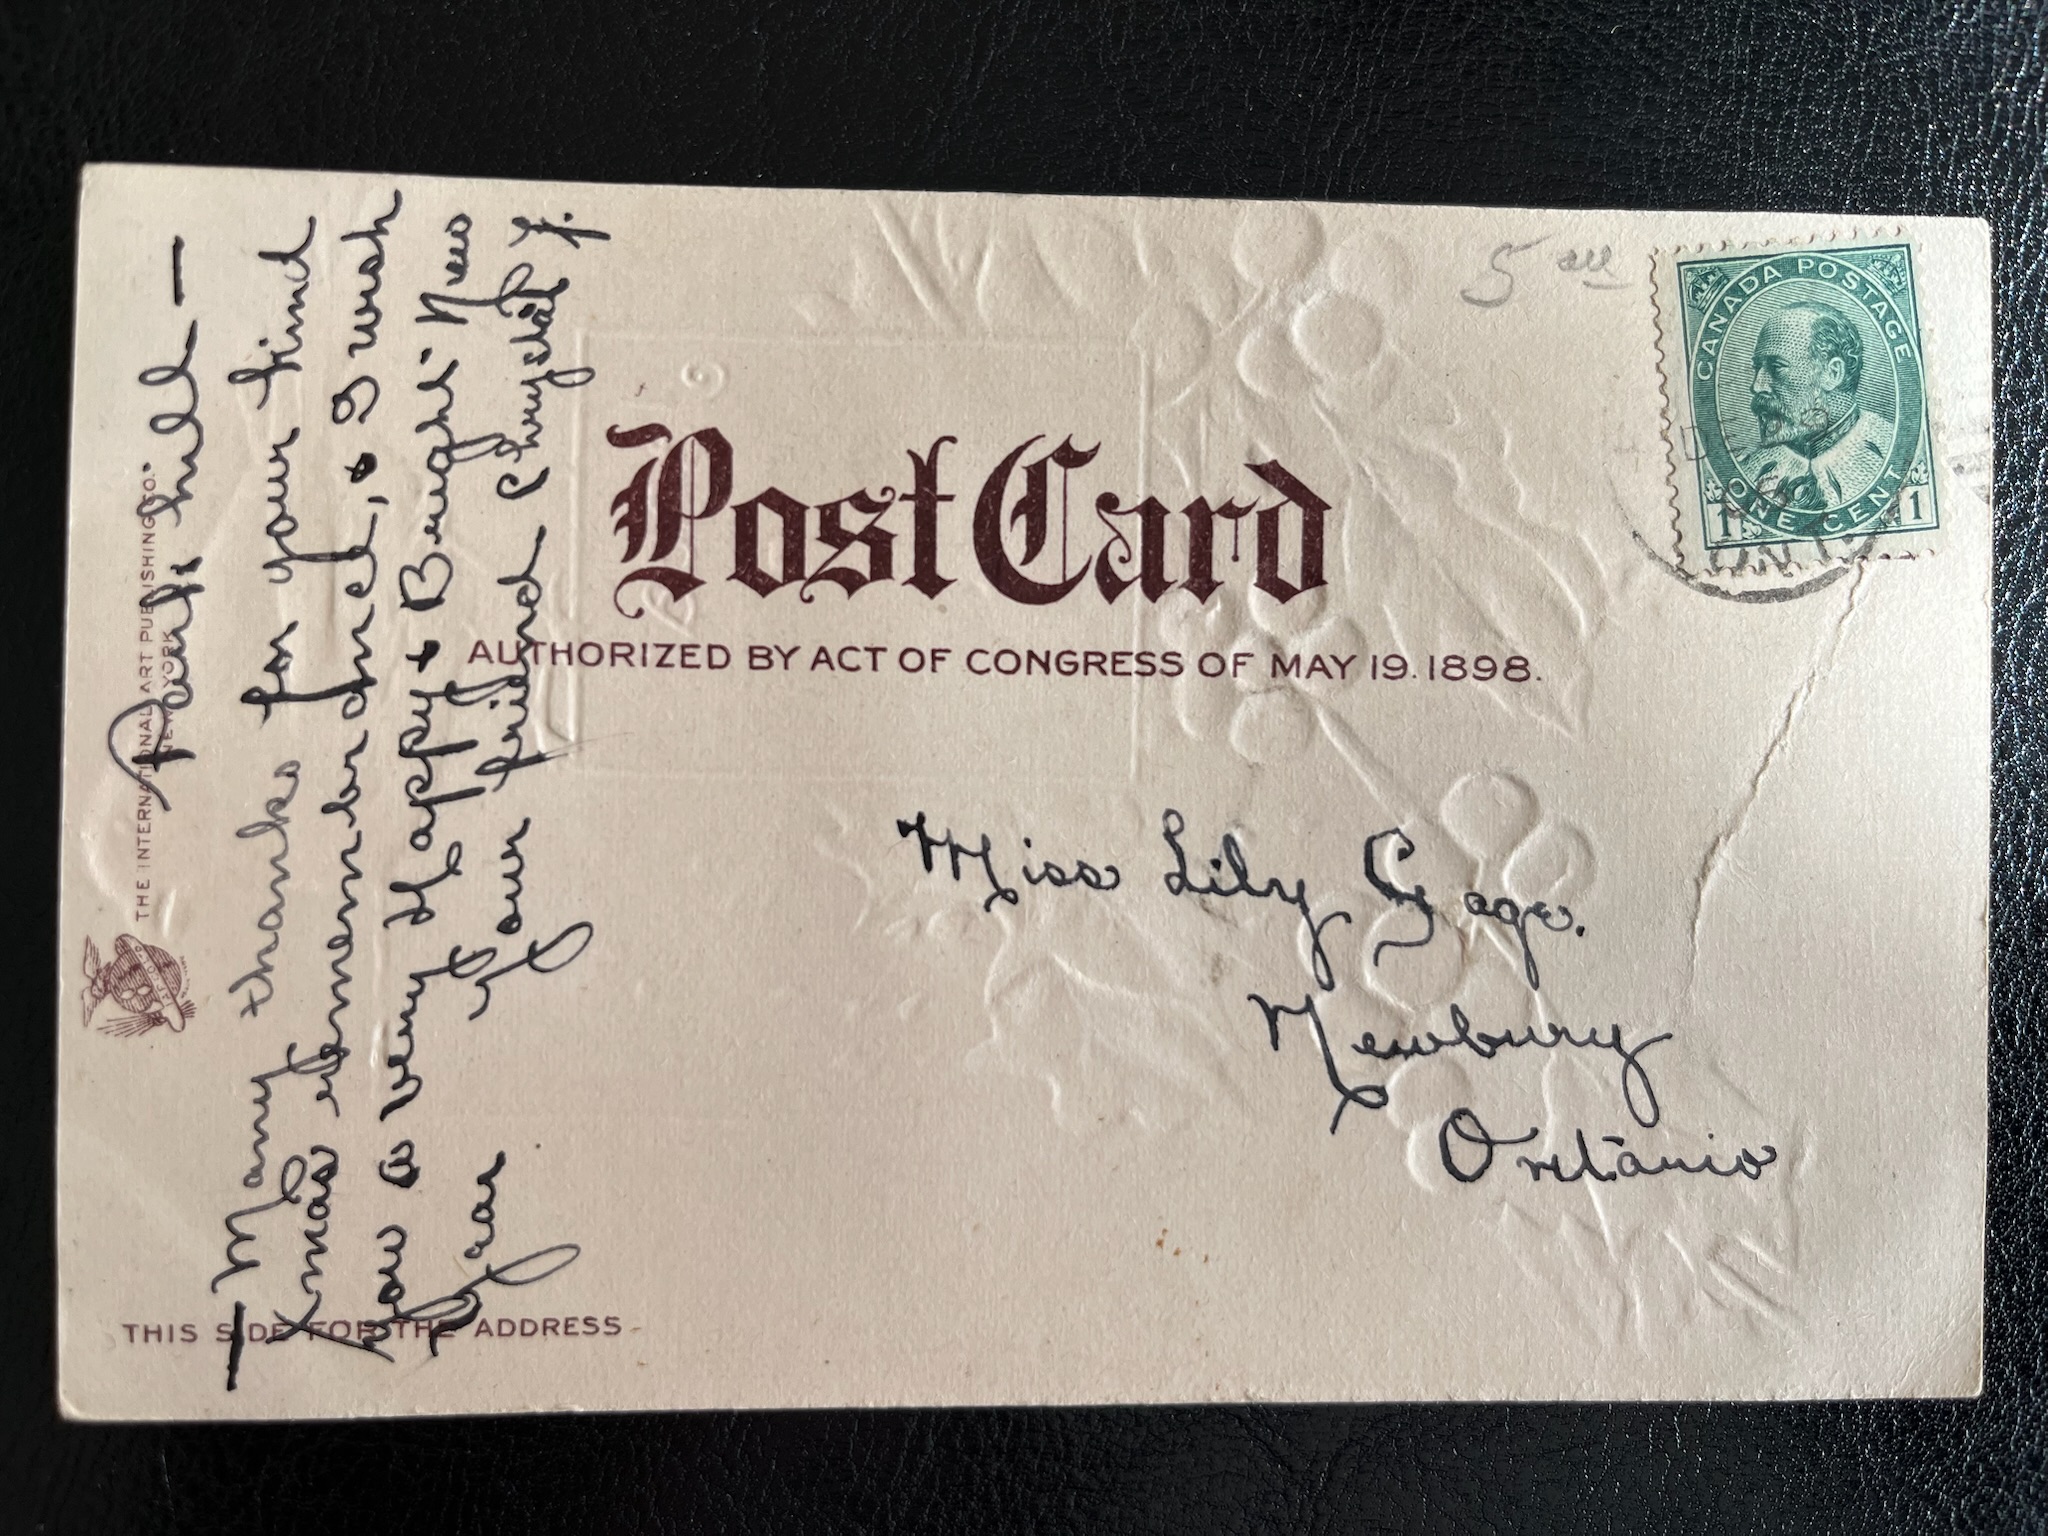 Park hill —
— Many thanks for your kind
Xmas remembrance, & I wish
you a very Happy & Bright New
Year
Your friend Chrystal J.
THE INTERNATIONAL ART PUBLISHING CO.
NEW YORK
Post Card
AUTHORIZED BY ACT OF CONGRESS OF MAY 19. 1898.
5
CANADA POSTAGE
ONE CENT
1 1
DE
ONT
Miss Lily Gage.
Newbury
Ontario
THIS SIDE FOR THE ADDRESS